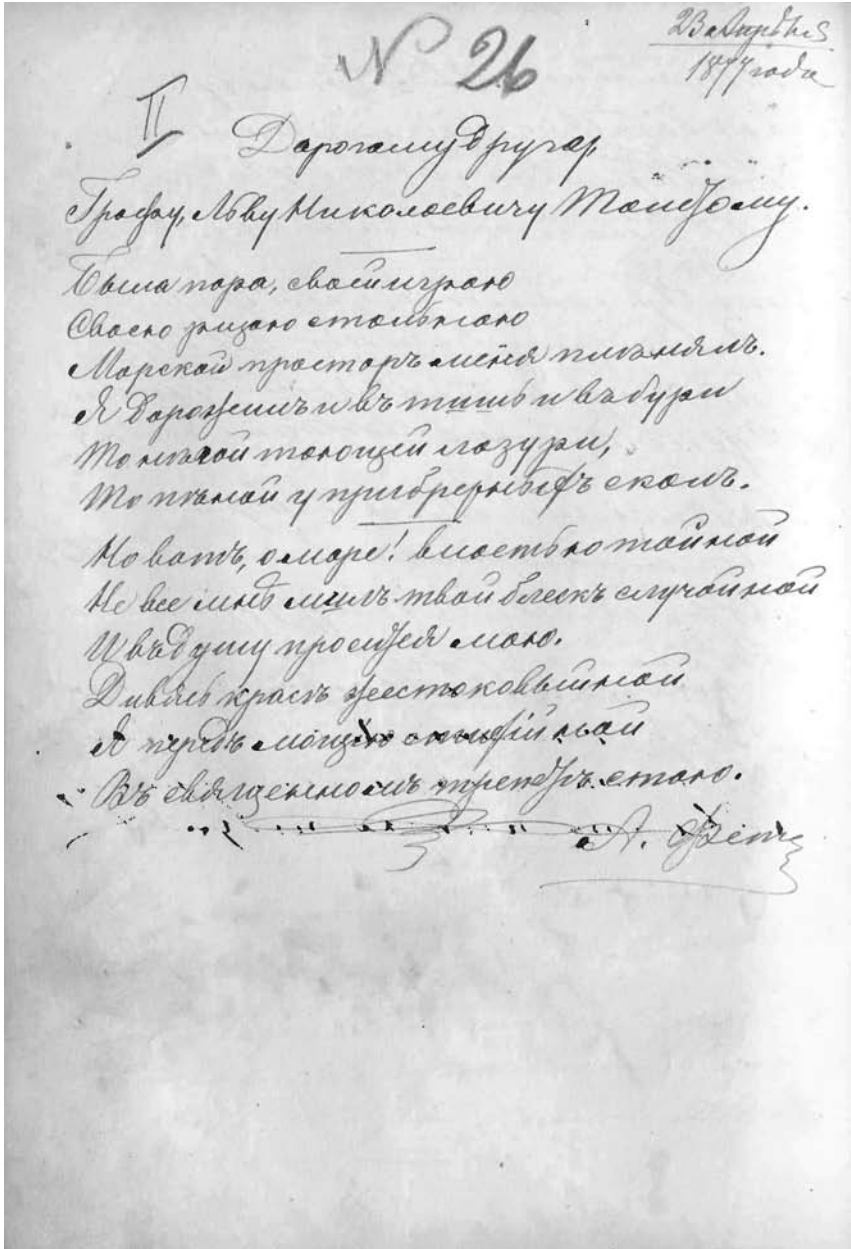 23 Апрѣля
1877 года
N 26
II
Дорогому другу,
Графу, Льву Николаевичу Толстому.
Была пора, своей игрою
Своею ризою стальною
Морской просторъ меня плѣнялъ.
Я дорожилъ и въ тишь и въ бури
То нѣгой тающей лазури,
То пѣной у прибрежныхъ скалъ.
Но вотъ, о море! властью тайной
Не все мнѣ милъ твой блескъ случайной
И въ душу просится мою.
Дивясь красѣ жестоковыйной
Я передъ мощію стихійной
Въ священномъ трепетѣ стою.
А. Фетъ